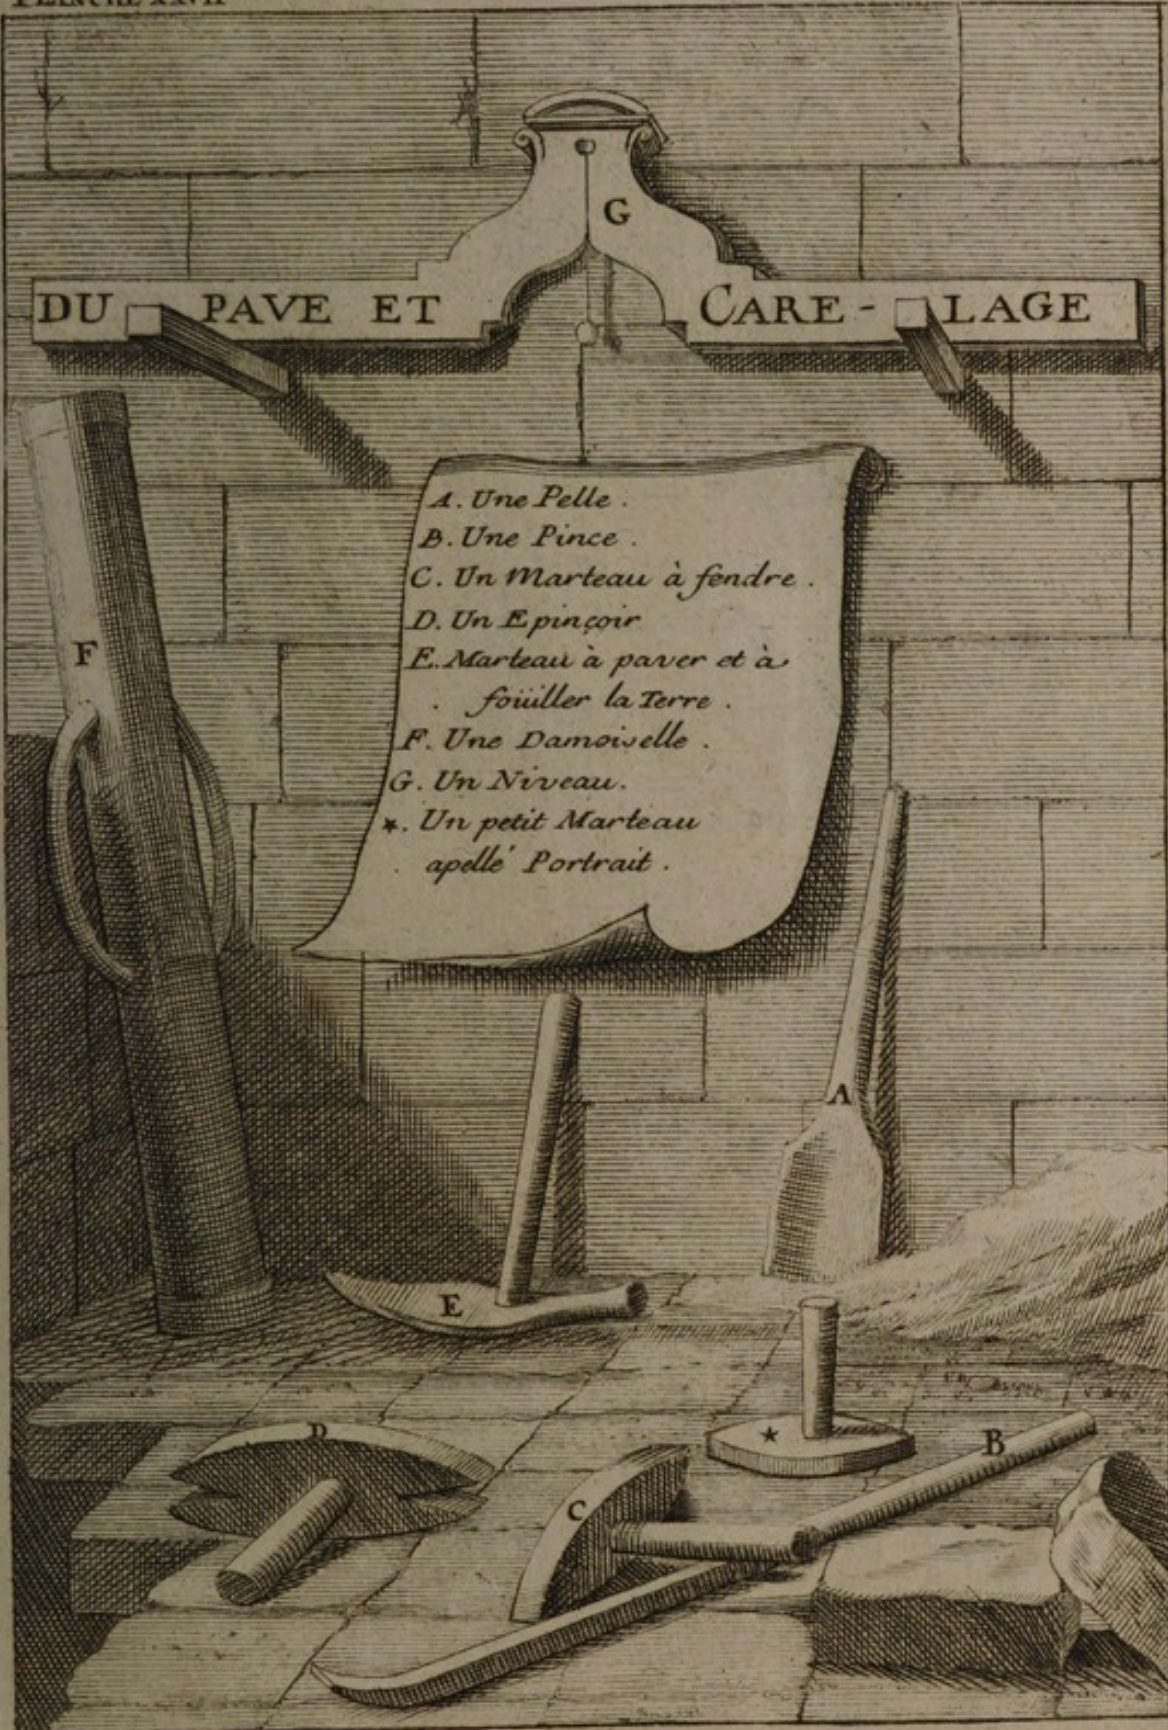 PLANCHE XXVII
G
DU PAVE ET CARE-LAGE
A. Une Pelle.
B. Une Pince.
C. Un Marteau à fendre.
D. Un Epinçoir
E. Marteau à paver et à
. foüiller la Terre.
F. Une Damoiselle.
G. Un Niveau.
★. Un petit Marteau
. apellé Portrait.
F
A
E
D
★
B
C